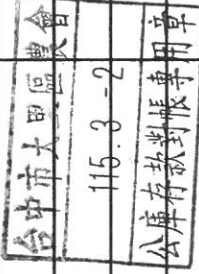 台中市大甲區農會
115.3.-2
公庫存款對帳專用章